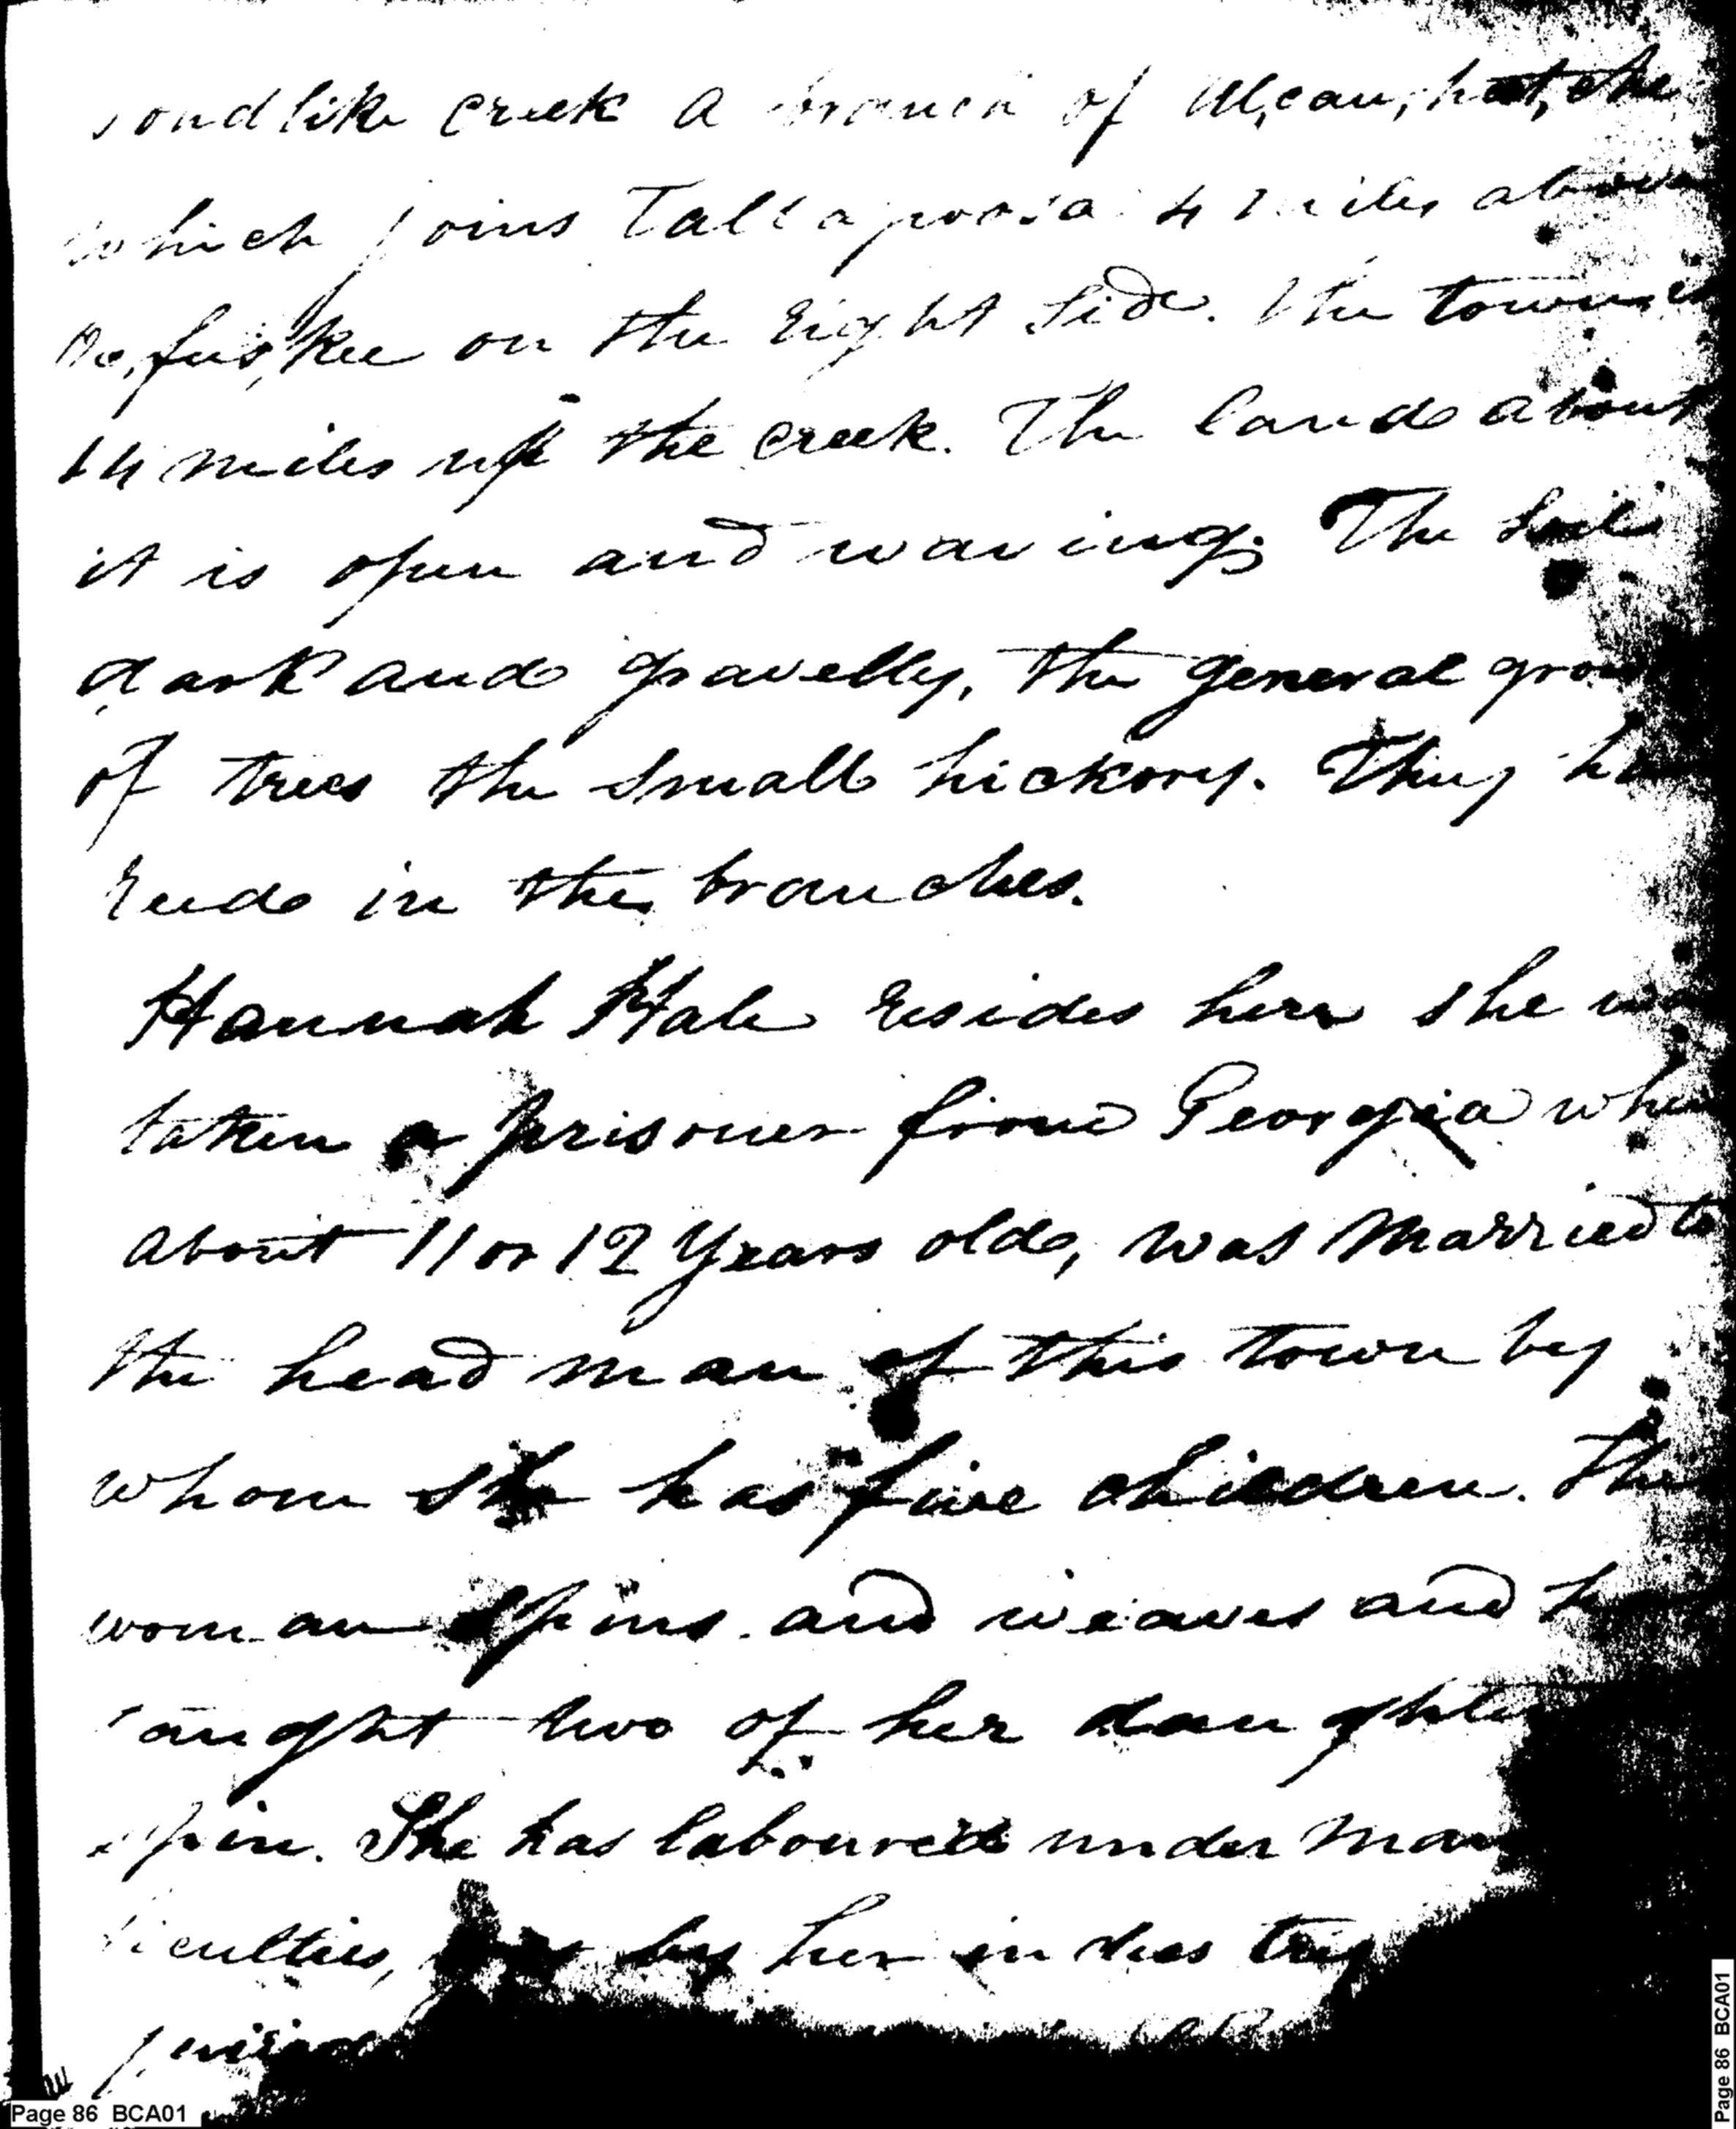 pondlike creek a branch of Ul,cau,hat,che
which joins Tallapoosa 4 miles above
Oc,fus,kee on the right side. The town is
14 miles up the creek. The land about
it is open and waving. The soil
dark and gravelly, the general grow
of trees the small hickory. They ha
reed in the branches.
Hannah Hale resides here she wa
taken a prisoner from Georgia when
about 11 or 12 Years old, was married to
the head man of this town by
whom she has five children. This
woman spins and weaves and h
taught two of her daughte
spin. She has laboured under man
ficulties, yet by her industry
Page 86 BCA01
Page 86 BCA01